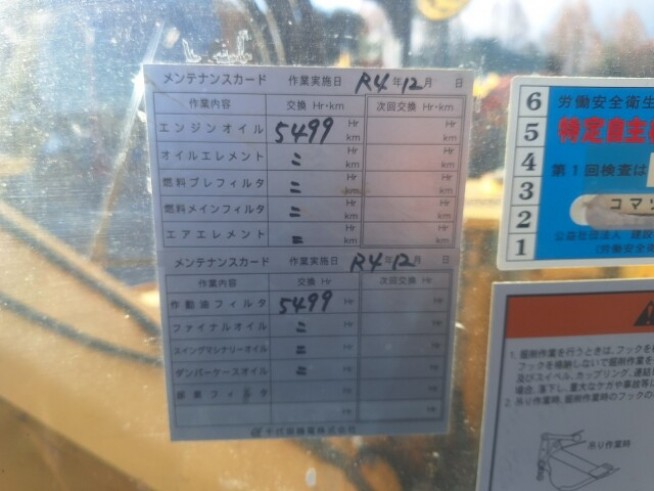 メンテナンスカード 作業実施日 R4年12月 日
作業内容 交換 Hr・km 次回交換 Hr・km
エンジンオイル 5499 Hr km Hr km
オイルエレメント 〃 Hr km Hr km
燃料プレフィルタ 〃 Hr km Hr km
燃料メインフィルタ 〃 Hr km Hr km
エアエレメント 〃 Hr km Hr km
メンテナンスカード 作業実施日 R4-12
作業内容 交換 Hr 次回交換 Hr
作動油フィルタ 5499 Hr Hr
ファイナルオイル 〃 Hr Hr
スイングマシナリーオイル 〃 Hr Hr
ダンパーケースオイル 〃 Hr Hr
Hr Hr
Hr Hr
6
5
4
3
2
1
労働安全衛生
特定自主
第1回検査は
コマツ
公益社団法人 建設
(労働安全衛
1. 掘削作業を行うときは、フックを
フックを格納しないで掘削作業を
及びスイベル、カップリング、連結
場合、落下し、重大なケガや事故等に
2. 吊り作業時、掘削作業時のフックの
吊り作業時